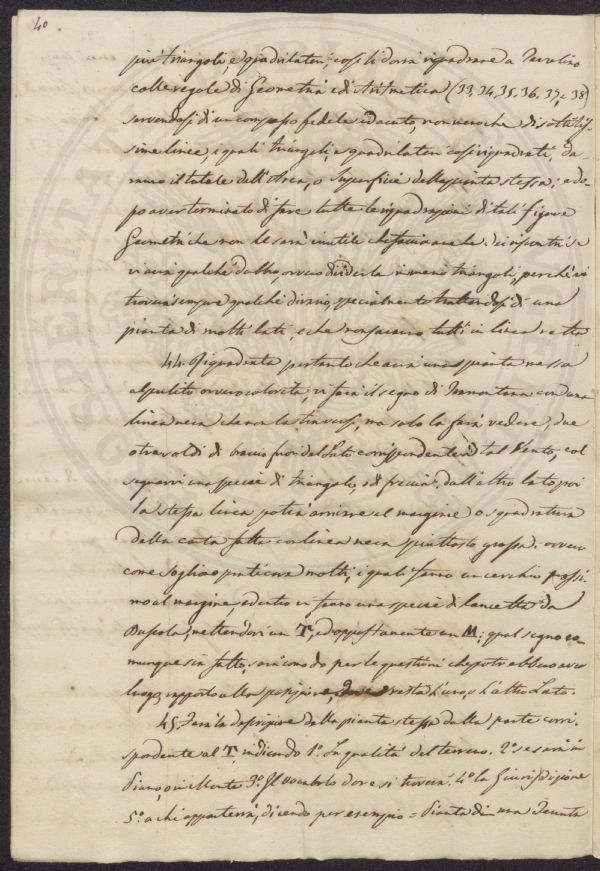 40
più triangoli, e quadrilateri; così li dovrà riquadrare a Tavolino
colle regole di Geometria e di Aritmetica (33. 34. 35. 36. 37. e 38)
servendosi di un compasso fedele ed acuto, non vero che di sottilis-
sime linee, i quali triangoli, e quadrilateri così riquadrati, da-
ranno il totale dell'Area, o Superficie della pianta stessa; e do-
po aver terminato di fare tutte le riquadrazioni di tali figure
Geometriche non le sarà inutile che faccia la riscontri se
vi avrà qualche sbaglio, ovvero dividerla in meno triangoli, perchè vi
troverà sempre qualche divario, specialmente trattandosi di una
pianta di molti lati, e che non saranno tutti in linea retta
44. Riquadrata pertanto che avrà una pianta messa
al pulito ovvero colorita vi farà il segno di Tramontana con una
linea nera che non la traversi, ma solo la farà vedere, due
o tre soldi di braccio fuori del Lato corrispondente a tal Vento, col
segnarvi una specie di triangolo, o di freccia. dall'altro lato poi
la stessa linea potrà venire al margine o squadratura
della carta fatta con linea nera piuttosto grossa. ovvero
come sogliono praticare molti, i quali fanno un cerchio prossi-
mo al margine, e dentro vi fanno una specie di lancetta da
Bussola, mettendovi un T, ed oppostamente un M; qual segno co-
munque sia fatto, sarà comodo per le questioni che potrebbero aver
luogo, rapporto alla posizione, dove resta l'uno, e l'altro Lato.
45. Farà la descrizione della pianta stessa dalla parte corri-
spondente al T, indicando 1.° La qualità del terreno. 2.° se sarà in
Piano, o in Monte 3.° Il vocabolo dove si troverà. 4.° la Giurisdizione
5.° a chi apparterrà, dicendo per esempio = Pianta di una Tenuta